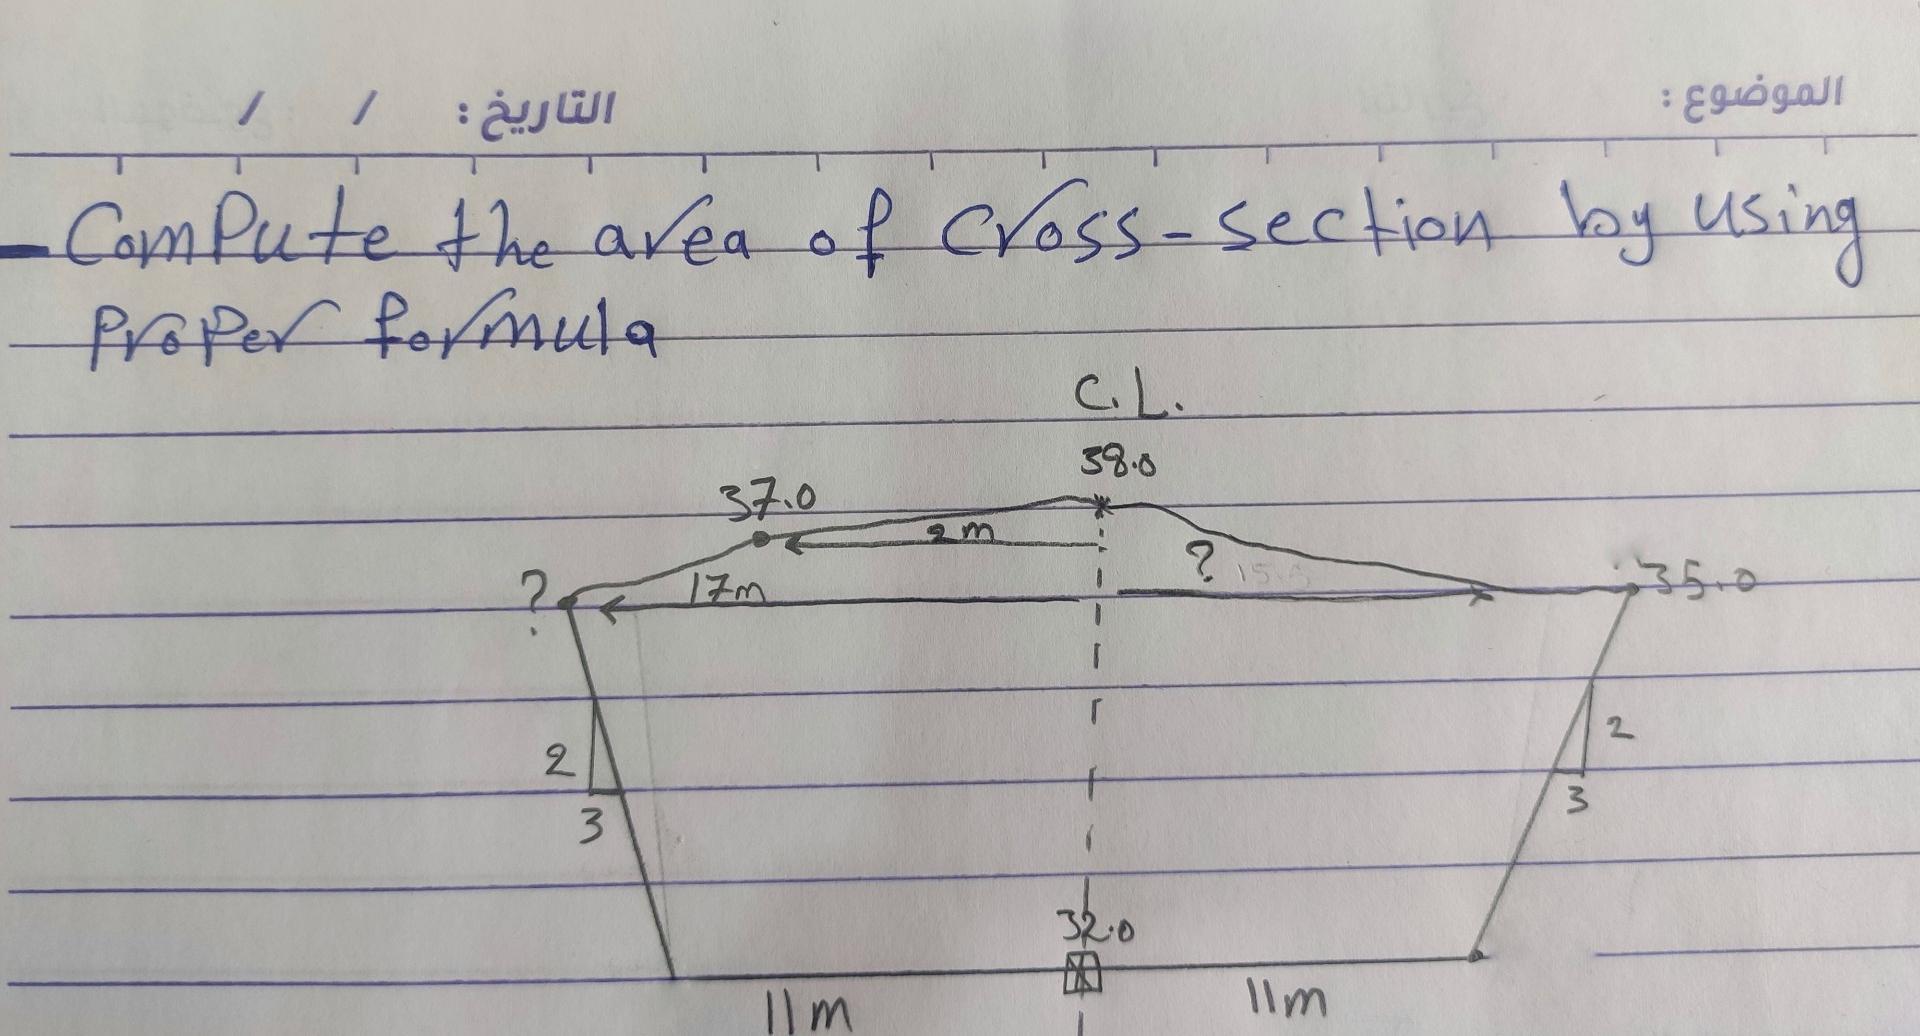 الموضوع:
التاريخ: / /
Compute the area of cross-section by using
proper formula
C.L.
38.0
37.0
2m
?
?
17m
15.5
35.0
2
3
2
3
32.0
11m
11m